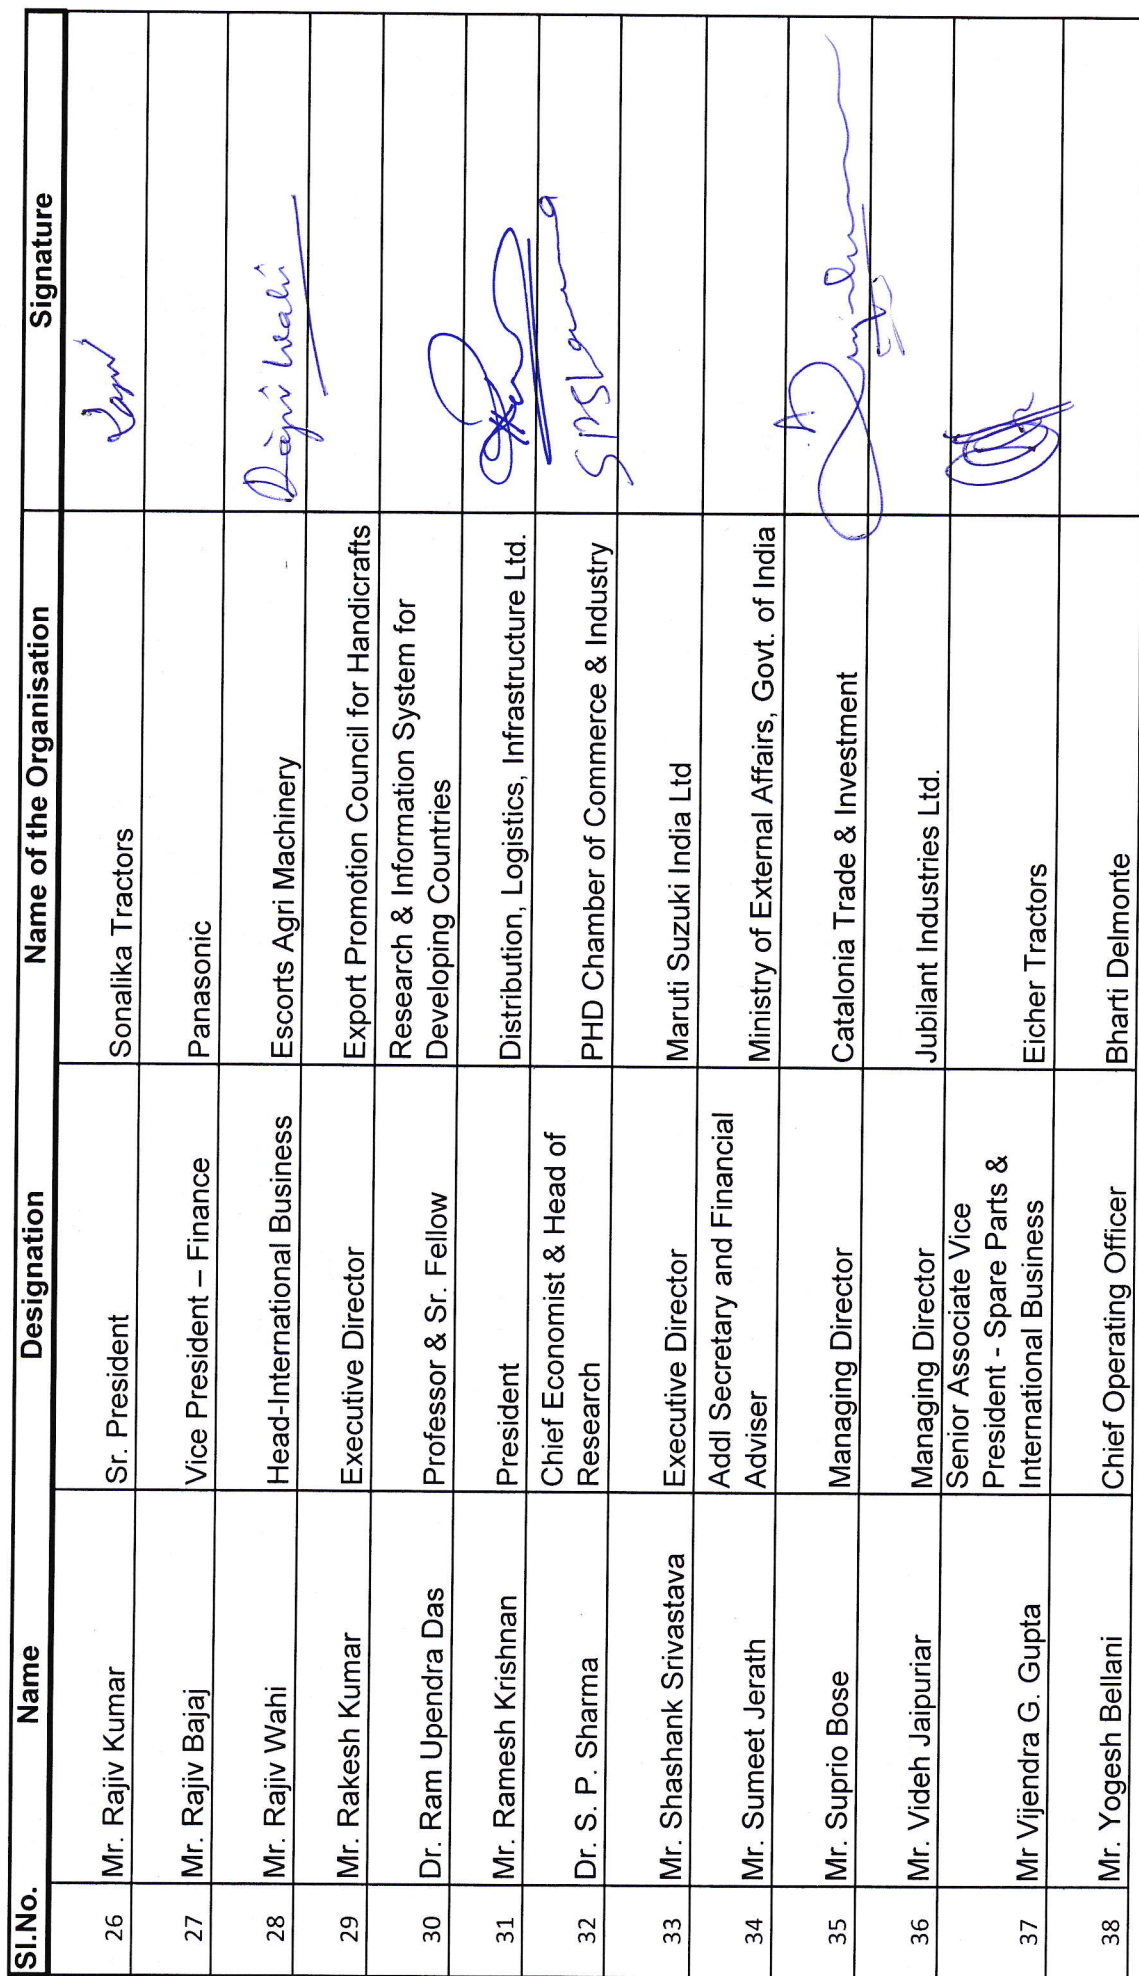 Sl.No. Name Designation Name of the Organisation Signature
26 Mr. Rajiv Kumar Sr. President Sonalika Tractors
27 Mr. Rajiv Bajaj Vice President – Finance Panasonic
28 Mr. Rajiv Wahi Head-International Business Escorts Agri Machinery Rajiv Wahi
29 Mr. Rakesh Kumar Executive Director Export Promotion Council for Handicrafts
30 Dr. Ram Upendra Das Professor & Sr. Fellow Research & Information System for
Developing Countries
31 Mr. Ramesh Krishnan President Distribution, Logistics, Infrastructure Ltd.
32 Dr. S. P. Sharma Chief Economist & Head of
Research PHD Chamber of Commerce & Industry SPSharma
33 Mr. Shashank Srivastava Executive Director Maruti Suzuki India Ltd
34 Mr. Sumeet Jerath Addl Secretary and Financial
Adviser Ministry of External Affairs, Govt. of India
35 Mr. Suprio Bose Managing Director Catalonia Trade & Investment
36 Mr. Videh Jaipuriar Managing Director Jubilant Industries Ltd.
37 Mr Vijendra G. Gupta Senior Associate Vice
President - Spare Parts &
International Business Eicher Tractors
38 Mr. Yogesh Bellani Chief Operating Officer Bharti Delmonte